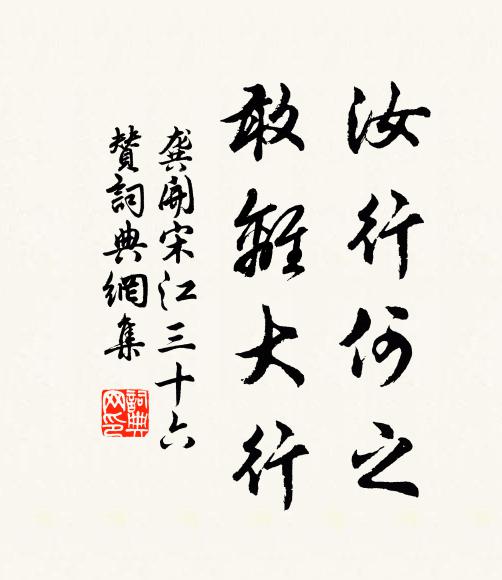 汝行何之
敢離大行
龔開宋江三十六
贊詞典網集
詞典
网印